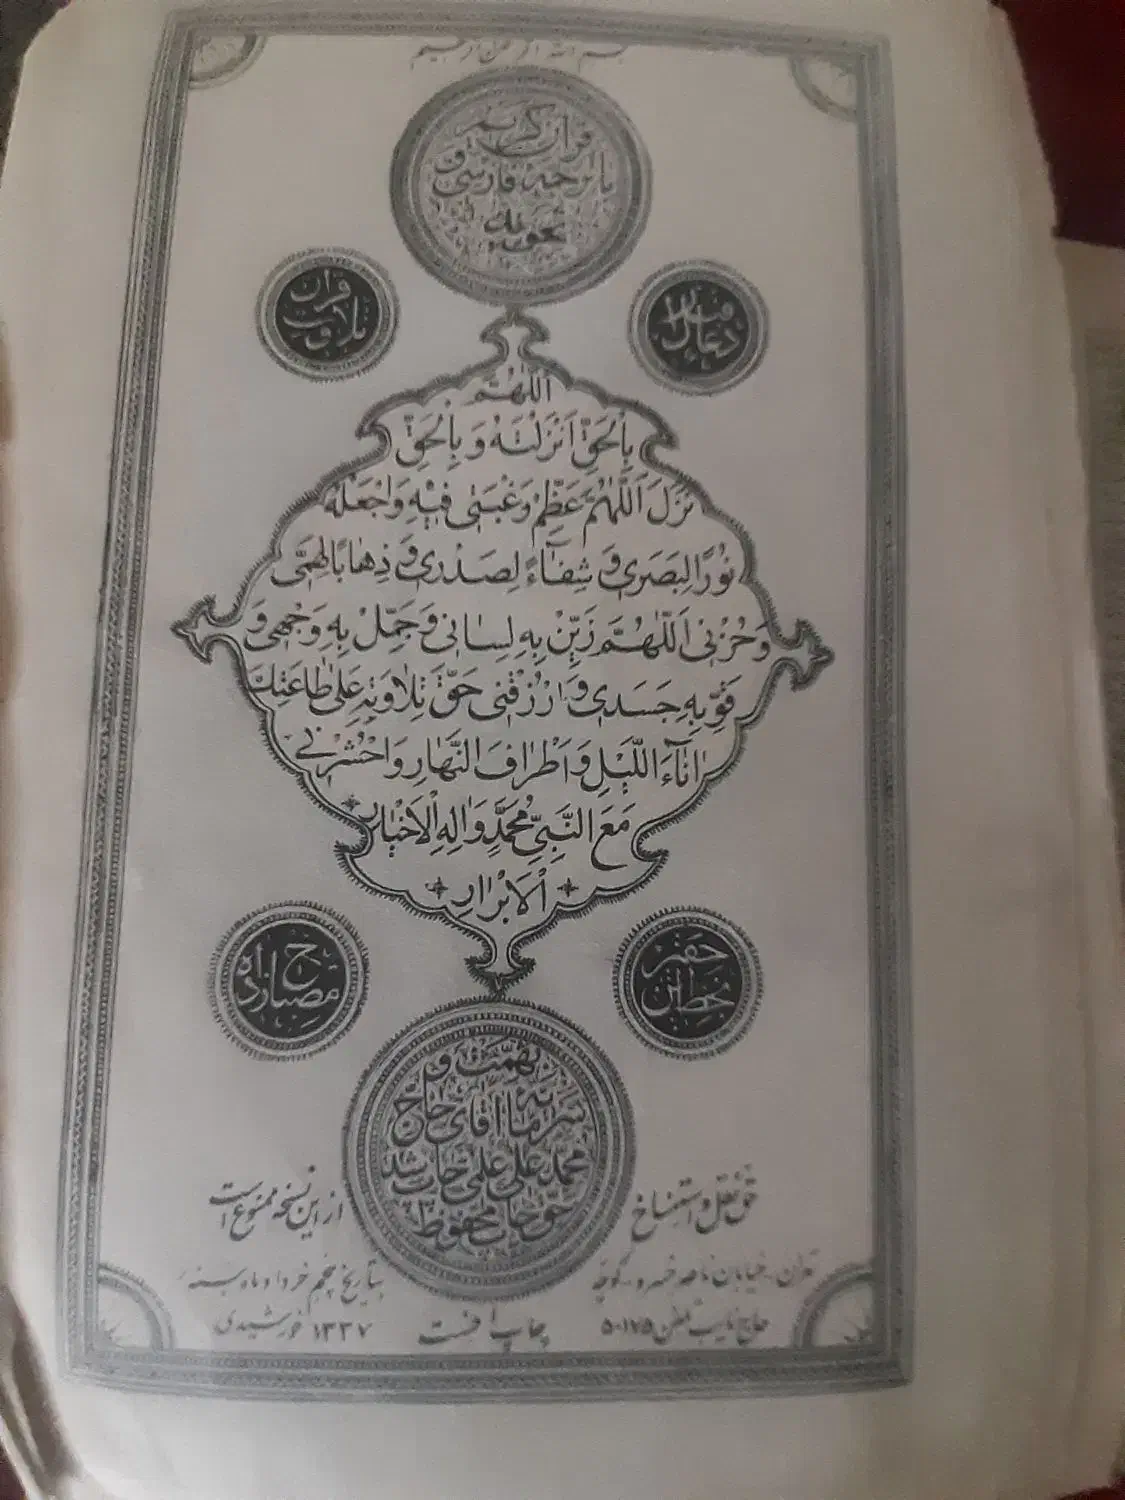 بسم الله الرحمن الرحیم
قرآن کریم
با ترجمه فارسی و
دعای قبل از
تلاوت قرآن
اَللّٰهُمَّ
بِالْحَقِّ اَنْزَلْتَهُ وَ بِالْحَقِّ
نَزَلَ اَللّٰهُمَّ عَظِّمْ رَغْبَتٖى فٖيهِ وَاجْعَلْهُ
نُورًا لِبَصَرٖى وَ شِفٰاءً لِصَدْرٖى وَ ذِهٰابًا لِهَمّٖى
وَ حُزْنٖى اَللّٰهُمَّ زَيِّنْ بِهِ لِسٰانٖى وَ جَمِّلْ بِهِ وَجْهٖى وَ
قَوِّ بِهِ جَسَدٖى وَ ارْزُقْنٖى حَقَّ تِلٰاوَتِهِ عَلىٰ طٰاعَتِكَ
اٰنٰاءَ اللَّيْلِ وَ اَطْرٰافَ النَّهٰارِ وَ احْشُرْنٖى
مَعَ النَّبِىِّ مُحَمَّدٍ وَ اٰلِهِ الْاَخْيٰارِ
الْاَبْرٰارِ
ح مصباح زاده
بهمت و
سرمایه آقای حاج
محمد علی علمی چاپ شد
حق چاپ محفوظ
حق نقل و استنساخ
از این نسخه ممنوع است
تهران - خیابان ناصر خسرو - کوچه
حاج نایب تلفن ۵۰۱۷۵
بتاریخ پنجم خرداد ماه سنه
۱۳۳۷ خورشیدی
چاپ افست